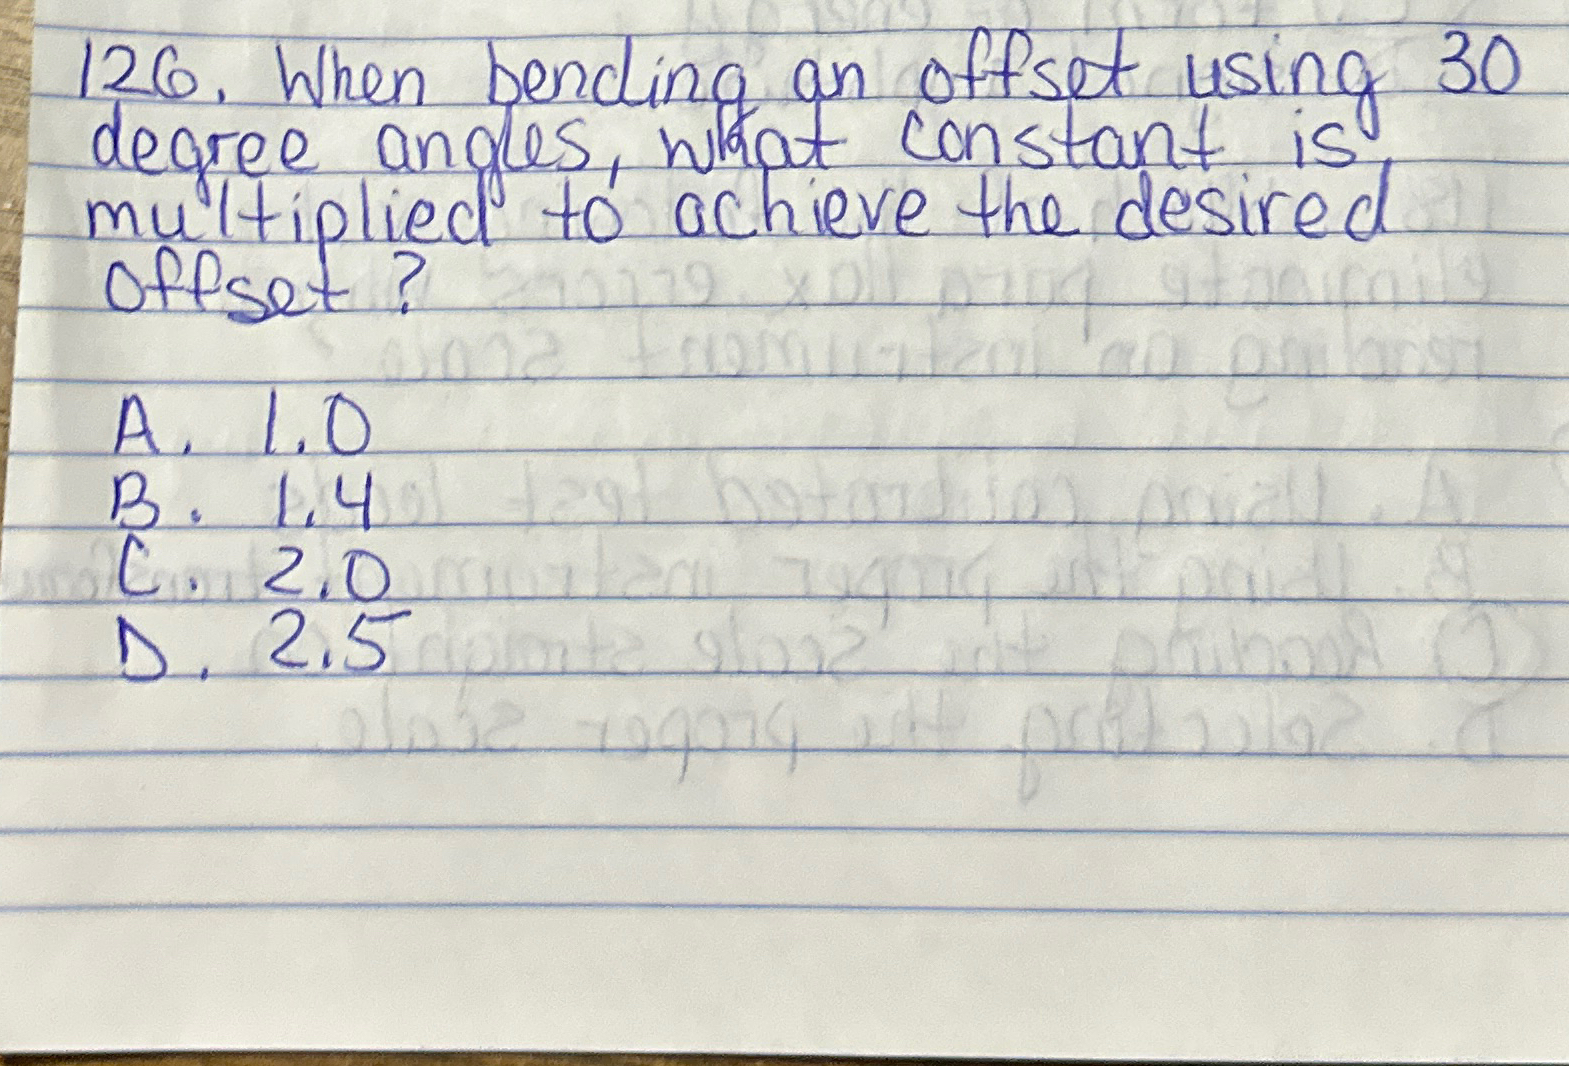 126. When bending an offset using 30
degree angles, what constant is
multiplied to achieve the desired
offset?
A. 1.0
B. 1.4
C. 2.0
D. 2.5